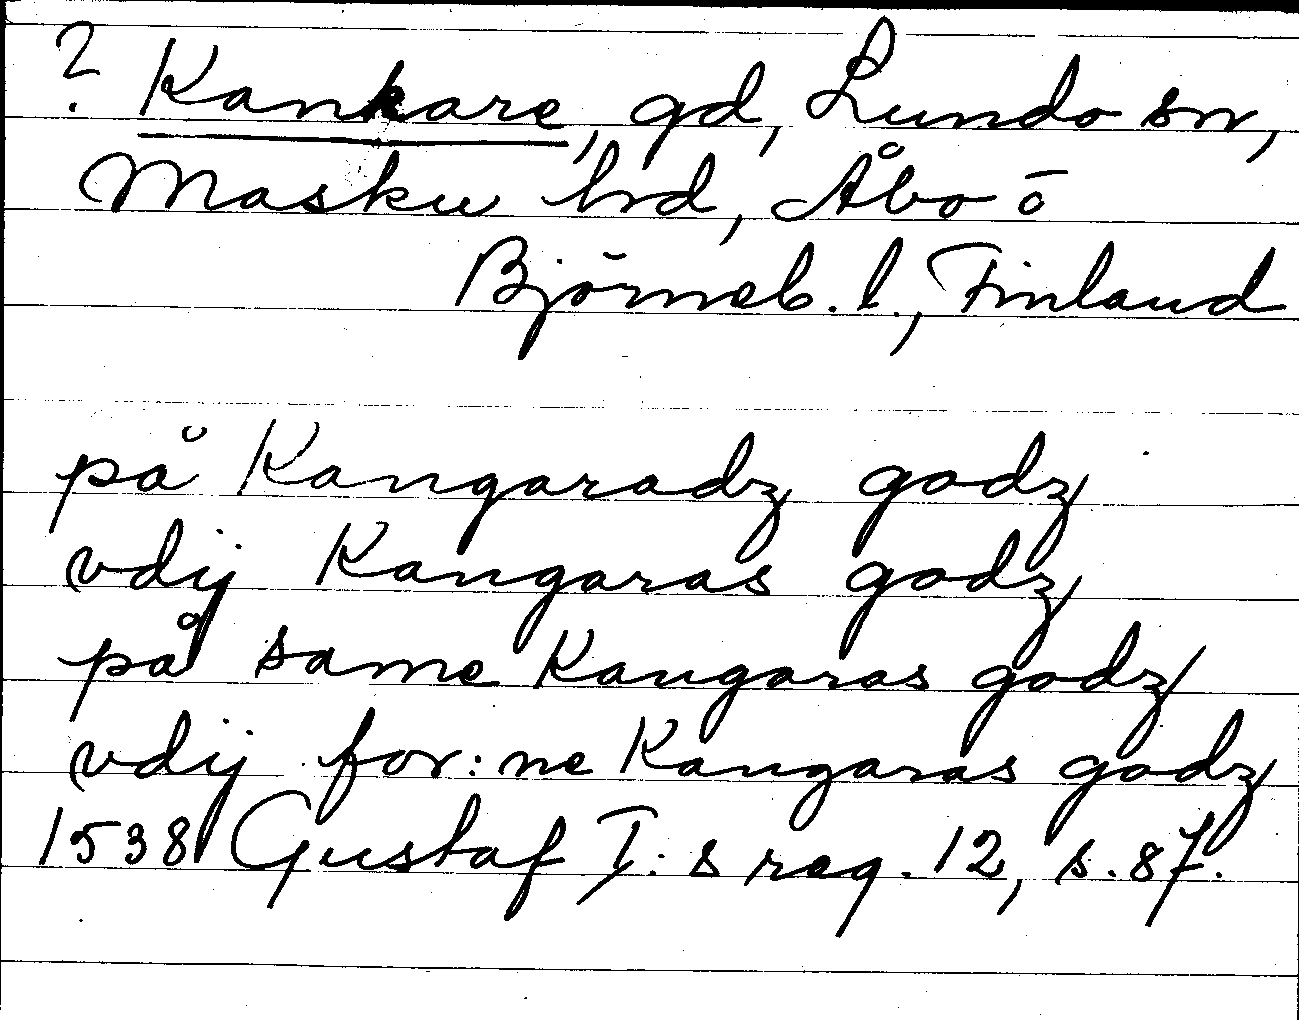 ? Kankare, gd, Lundo sn,
Masku hrd, Åbo o
Björneb. l., Finland
på Kangaradz godz
vdij Kangaras godz
på same Kangaras godz
vdij for:ne Kangaras godz
1538 Gustaf I:s reg. 12, s. 87.